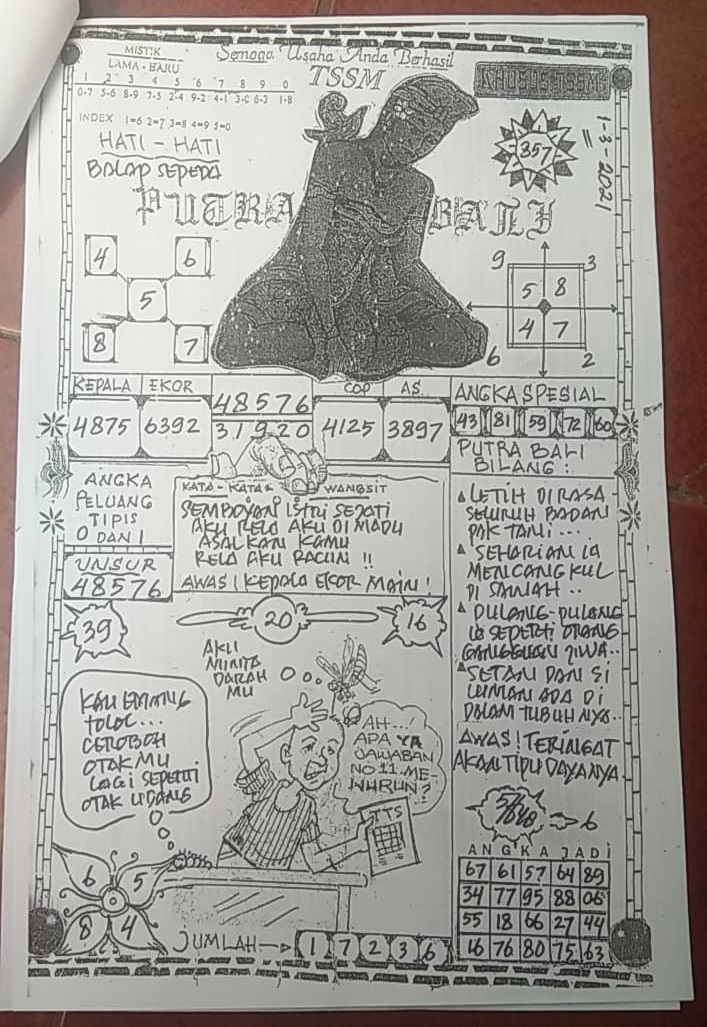 MISTIK
LAMA - BARU
1 2 3 4 5 6 7 8 9 0
0-7 5-6 8-9 7-5 2-4 9-2 4-1 3-0 6-3 1-8
INDEX 1=6 2=7 3=8 4=9 5=0
HATI - HATI
BALAP SEPEDA
Semoga Usaha Anda Berhasil
TSSM
KHUSUS TSSM
357
1-3-2021
PUTRA BALI
4 6
5
8 7
9 3
5 8
4 7
6 2
KEPALA EKOR
4875 6392
48576
31920
COP AS
4125 3897
ANGKA SPESIAL
43 81 59 72 60
ANGKA
PELUANG
TIPIS
0 DAN 1
UNSUR
48576
KATA - KATA & WANGSIT
SEMBOYAN ISTRI SEJATI
AKU RELA AKU DI MADU
ASALKAN KAMU
RELA AKU RACUN !!
AWAS! KEPALA EKOR MAIN!
PUTRA BALI
BILANG :
LETIH DIRASA
SELURUH BADAN
PAK TANI....
SEHARIAN IA
MENCANGKUL
DI SAWAH..
PULANG-PULANG
IA SEPERTI ORANG
GANGGUAN JIWA..
SETAN DAN SI
LUMAN ADA DI
DALAM TUBUHNYA..
AWAS! TERINGAT
AKAN TIPU DAYANYA
39
20
16
AKU
MINTA
DARAH
MU
KAU EMANG
TOLOL...
CEROBOH
OTAKMU
LAGI SEPERTI
OTAK UDANG
AH...!
APA YA
JAWABAN
NO 11 ME-
NURUN?
TTS
6 5
8 4
JUMLAH 1 7 2 3 6
6
ANGKA JADI
67 61 57 64 89
34 77 95 88 06
55 18 66 27 44
16 76 80 75 63